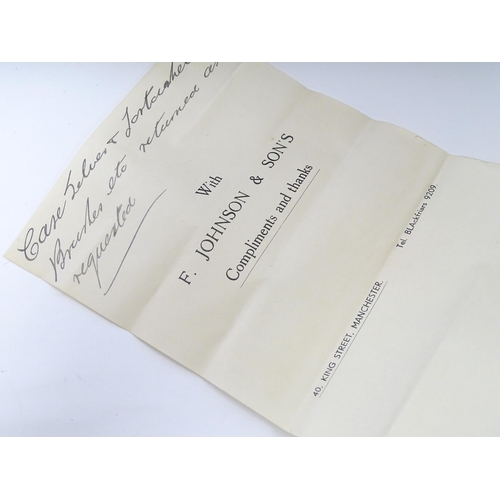 Case Silver & Tortoishell
Brushes etc returned as
requested
With
F. JOHNSON & SON'S
Compliments and thanks
40, KING STREET, MANCHESTER.
Tel. BLAckfriars 9209.